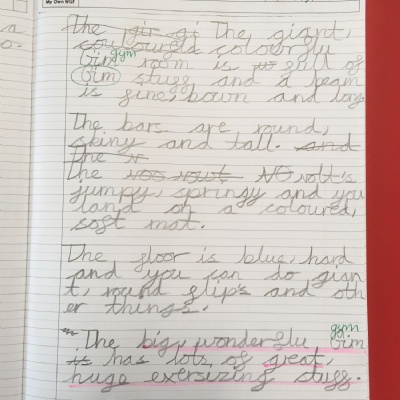 My Own WGF
a
o-
The gir gi The giant,
coulourela colourflu
gym
Gim room is is full of
Gim stuff and a beam
is fine, bown and long
The bars are round,
shiny and tall. and
The
The vos vout NO volt's
jumpy, springy and you
land on a coloured,
soft mat.
The floor is blue, hard
and you can do gian
t, round flips and oth
er things.
gym
The big, wonderflu Gim
is has lots of great,
huge exersizing stuff.